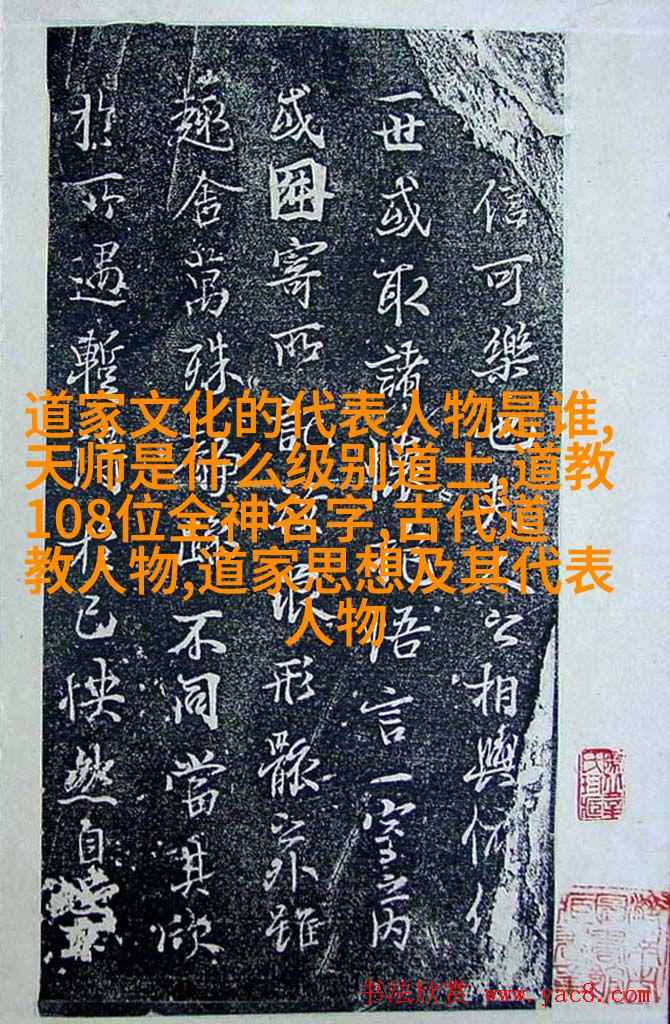 信可樂也夫人之相與俯仰
一世或取諸懷抱悟言一室之內
或因寄所託放浪形骸之外雖
趣舍萬殊靜躁不同當其欣
於所遇暫得於己快然自
道家文化的代表人物是谁,
天师是什么级别道士,道教
108位全神名字,古代道
教人物,道家思想及其代表
人物
书法欣赏 www.yac8.com